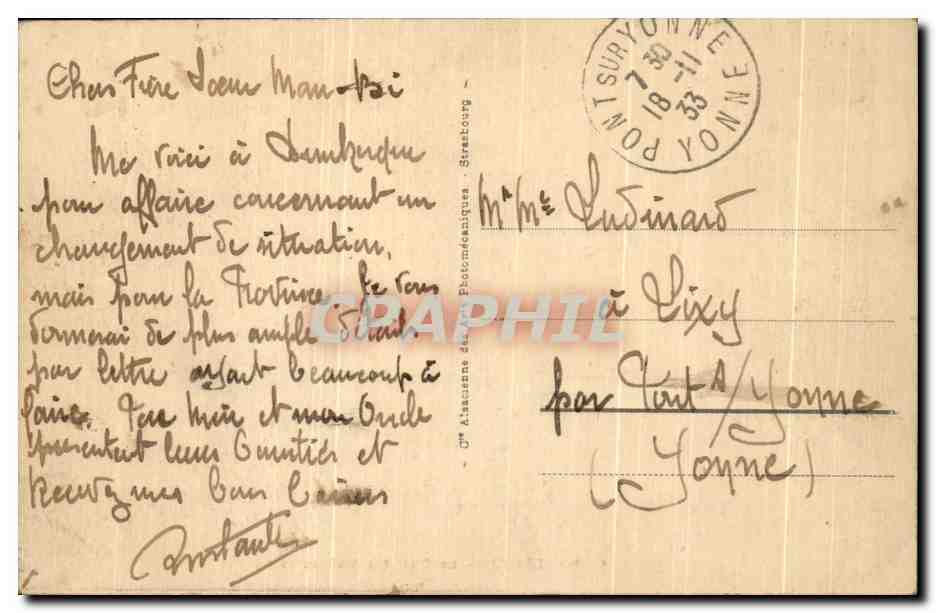 Chers Frère Soeur
Me voici à Dunkerque
pour affaire concernant un
changement de situation,
mais pour la Province. Je vous
donnerai de plus ample détails
par lettre ayant beaucoup à
faire. mon Oncle
présentent leurs amitiés et
Recevez mes bons baisers
Cie Alsacienne des Arts Photomécaniques - Strasbourg -
PONT SUR YONNE YONNE
7 30
18 -11
33
Mr Me Ludinard
à Lixy
par Pont s/ Yonne
(Yonne)
CPAPHIL